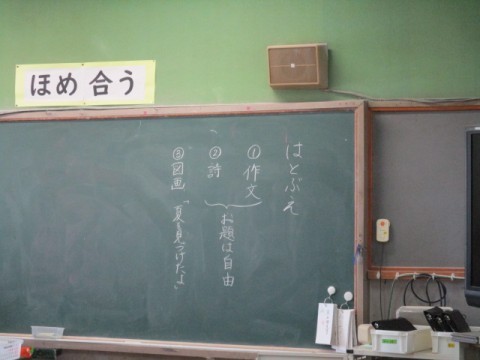 ほめ合う
はとぶえ
①作文
②詩
お題は自由
③図画 「夏を見つけたよ」